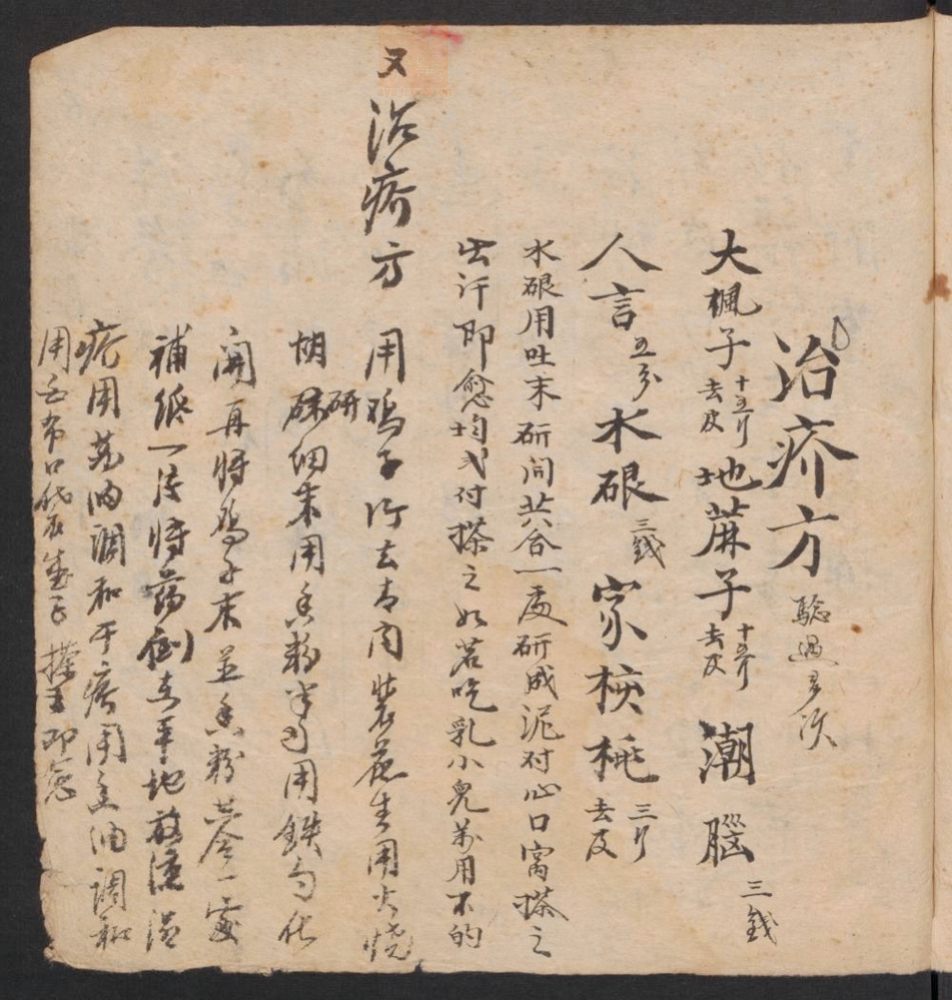 治疥方 驗過多次
大楓子 十五个去皮 地蔴子 十五个去皮 潮腦 三錢
人言 五分 水硍 三錢 家核桃 三个去皮
水硍用吐末研同共合一處研成泥对心口窩搽之
出汗即愈均式付搽之如若吃乳小兒萬用不的
又治疥方 用鸡子 去青内装 生用火燒
胡 研細末用香粉 用鉄勺化
開再将鸡子末並香粉共合一處
補紙一張将药倒在平地
疮用 油調和干疥用 油調和
用 布口袋盛了搽上即愈